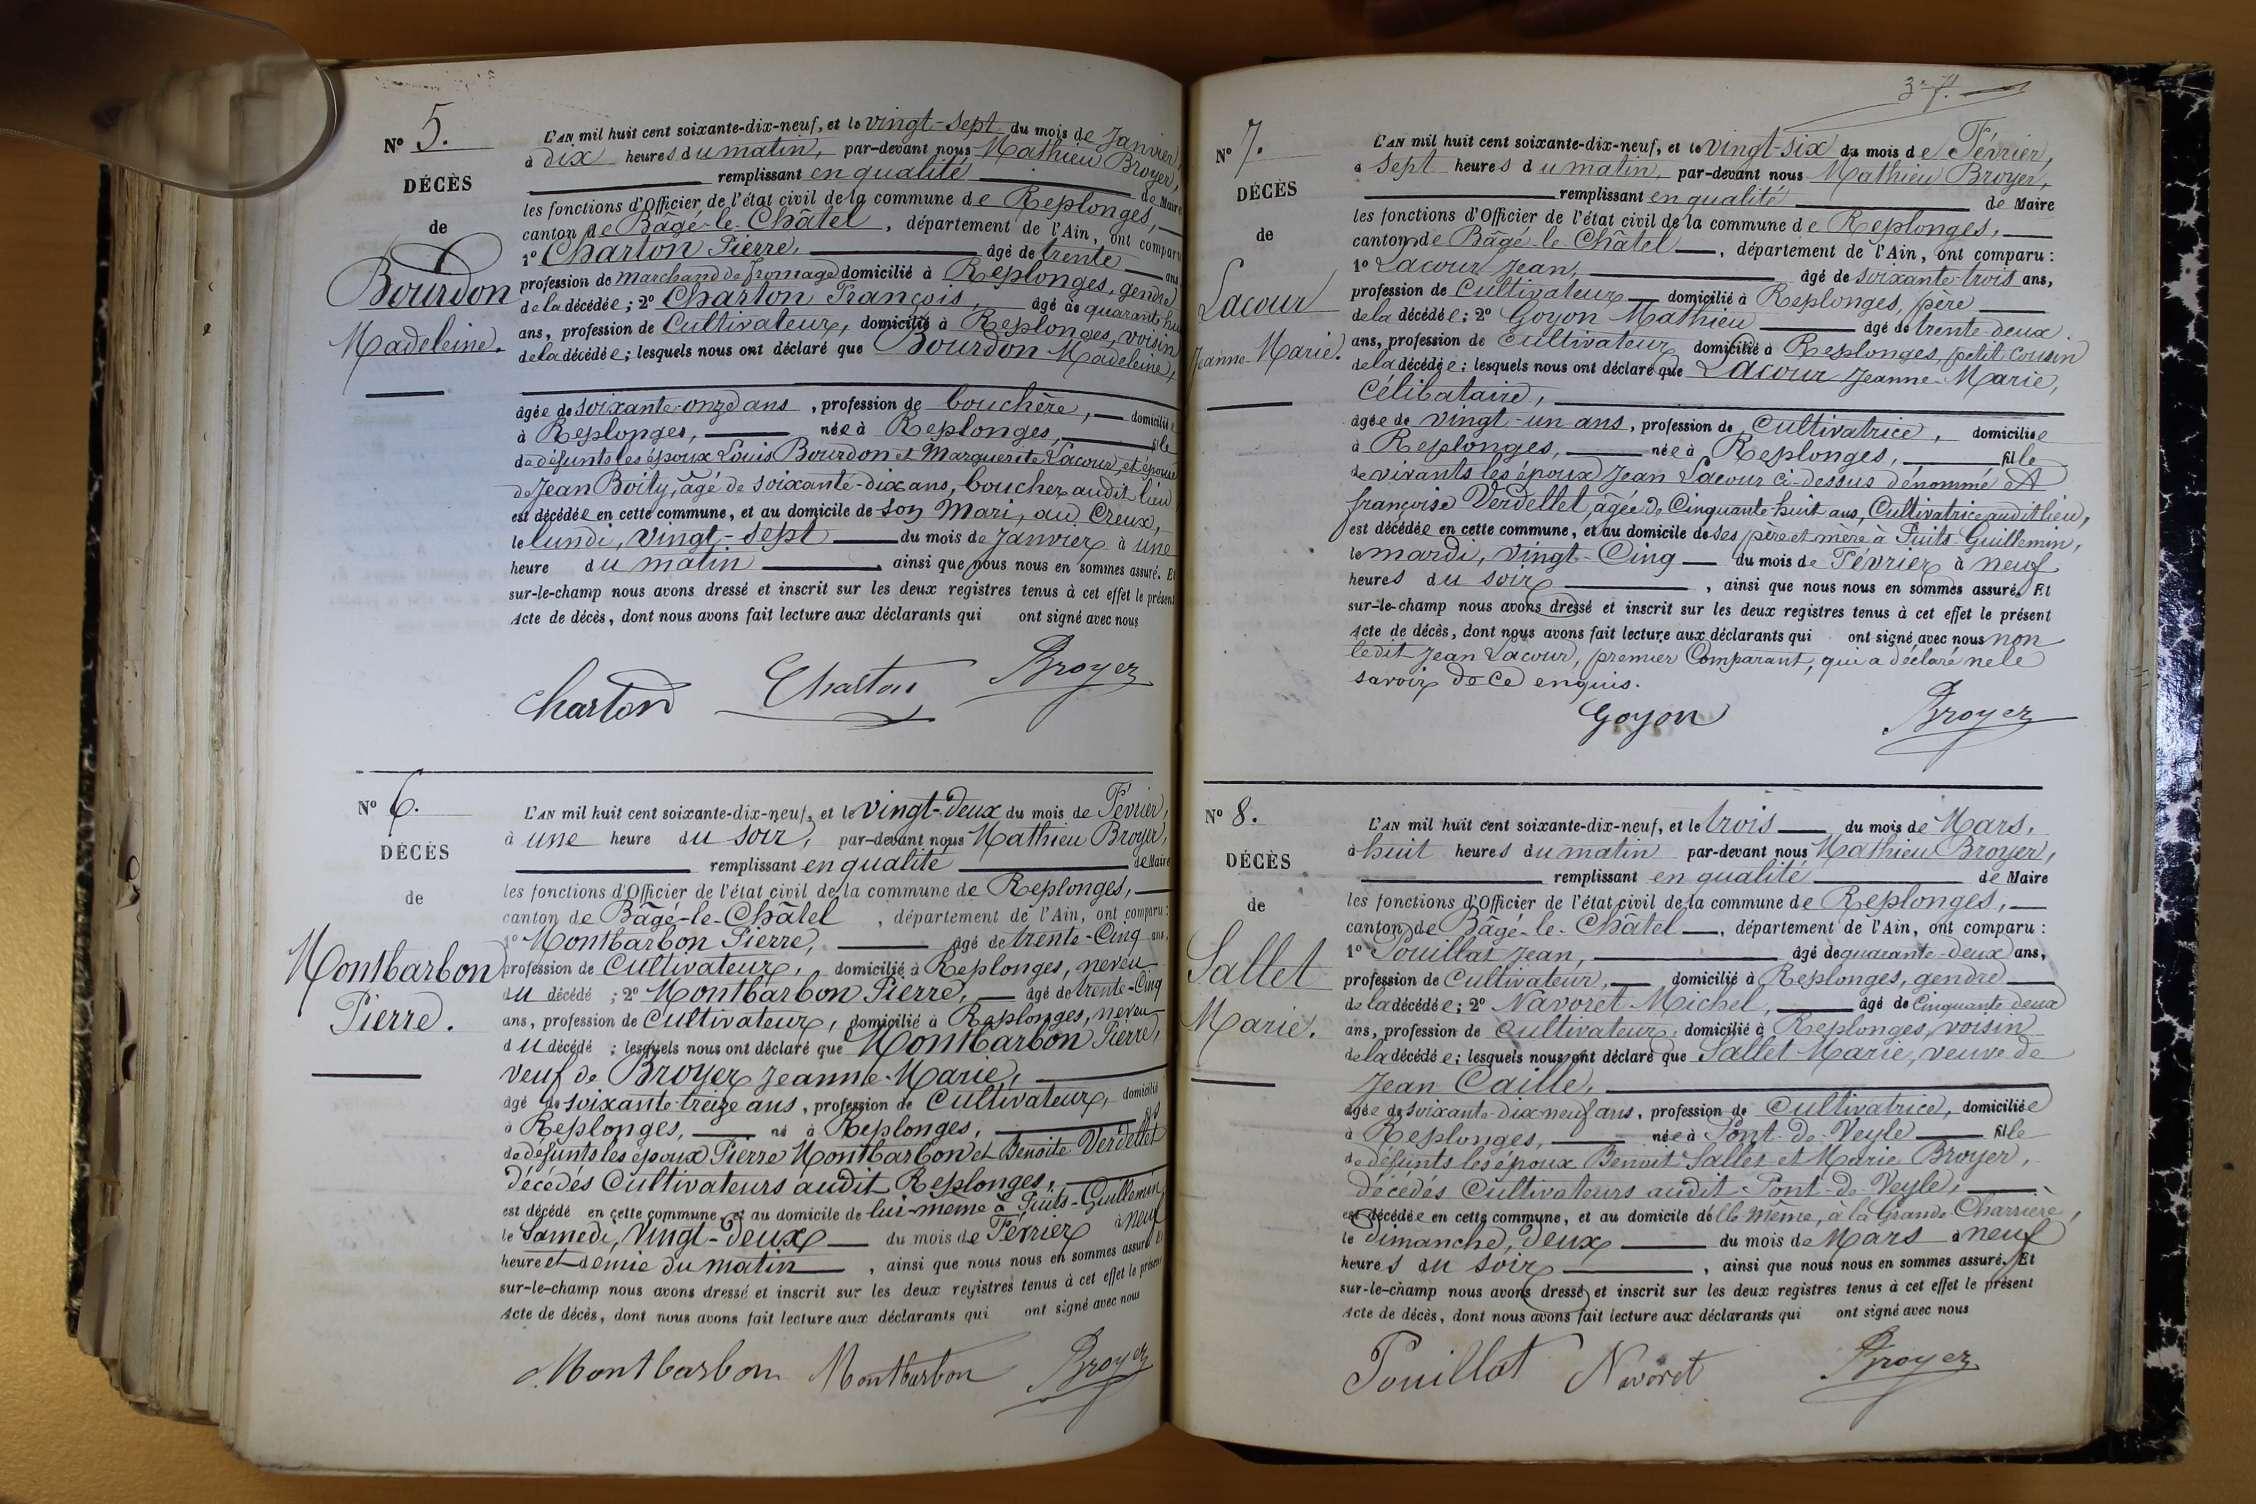 N° 5.
DÉCÈS
de
Bourdon
Madeleine.
L'AN mil huit cent soixante-dix-neuf, et le vingt-sept du mois de Janvier,
à dix heures du matin, par-devant nous Mathieu Broyer,
remplissant en qualité de Maire
les fonctions d'Officier de l'état civil de la commune de Replonges,
canton de Bâgé-le-Châtel, département de l'Ain, ont comparu
1° Charton Pierre, âgé de trente ans
profession de marchand de fromage domicilié à Replonges, gendre
de la décédée; 2° Charton François, âgé de quarante hu
ans, profession de Cultivateur, domicilié à Replonges, voisin
de la décédée; lesquels nous ont déclaré que Bourdon Madeleine,
âgée de soixante-onze ans, profession de bouchère, domiciliée
à Replonges, née à Replonges, fille
de défunts les époux Louis Bourdon et Marguerite Lacour, et épouse
de Jean Boity, âgé de soixante-dix ans, boucher audit lieu,
est décédée en cette commune, et au domicile de son Mari, au Creux,
le lundi, vingt-sept du mois de Janvier à une
heure du matin, ainsi que nous nous en sommes assuré. Et
sur-le-champ nous avons dressé et inscrit sur les deux registres tenus à cet effet le présent
Acte de décès, dont nous avons fait lecture aux déclarants qui ont signé avec nous
Charton Charton Broyer
N° 6.
DÉCÈS
de
Montbarbon
Pierre.
L'AN mil huit cent soixante-dix-neuf, et le vingt-deux du mois de Février,
à une heure du soir, par-devant nous Mathieu Broyer,
remplissant en qualité de Maire
les fonctions d'Officier de l'état civil de la commune de Replonges,
canton de Bâgé-le-Châtel, département de l'Ain, ont comparu :
1° Montbarbon Pierre, âgé de trente-Cinq ans,
profession de Cultivateur, domicilié à Replonges, neveu
du décédé ; 2° Montbarbon Pierre, âgé de trente-Cinq
ans, profession de Cultivateur, domicilié à Replonges, neveu
du décédé ; lesquels nous ont déclaré que Montbarbon Pierre,
veuf de Broyer Jeanne-Marie,
âgé de soixante-treize ans, profession de Cultivateur, domicilié
à Replonges, né à Replonges, fils
de défunts les époux Pierre Montbarbon et Benoite Verdellet
décédés Cultivateurs audit Replonges,
est décédé en cette commune, et au domicile de lui-même à Puits-Guillemin,
le Samedi, Vingt-deux du mois de Février à neuf
heure et demie du matin, ainsi que nous nous en sommes assuré. Et
sur-le-champ nous avons dressé et inscrit sur les deux registres tenus à cet effet le présent
Acte de décès, dont nous avons fait lecture aux déclarants qui ont signé avec nous
Montbarbon Montbarbon Broyer
37.
N° 7.
DÉCÈS
de
Lacour
Jeanne-Marie.
L'AN mil huit cent soixante-dix-neuf, et le vingt-six du mois de Février,
à sept heures du matin, par-devant nous Mathieu Broyer,
remplissant en qualité de Maire
les fonctions d'Officier de l'état civil de la commune de Replonges,
canton de Bâgé-le-Châtel, département de l'Ain, ont comparu :
1° Lacour Jean, âgé de soixante-trois ans,
profession de Cultivateur domicilié à Replonges, père
de la décédée; 2° Goyon Mathieu âgé de trente-deux
ans, profession de Cultivateur domicilié à Replonges, petit cousin
de la décédée; lesquels nous ont déclaré que Lacour Jeanne-Marie,
Célibataire,
âgée de vingt-un ans, profession de Cultivatrice, domiciliée
à Replonges, née à Replonges, fille
de vivants les époux Jean Lacour ci-dessus dénommé et
françoise Verdellet, âgée de Cinquante-huit ans, Cultivatrice audit lieu,
est décédée en cette commune, et au domicile de ses père et mère à Puits-Guillemin,
le mardi, vingt-Cinq du mois de Février à neuf
heures du soir, ainsi que nous nous en sommes assuré. Et
sur-le-champ nous avons dressé et inscrit sur les deux registres tenus à cet effet le présent
Acte de décès, dont nous avons fait lecture aux déclarants qui ont signé avec nous non
ledit Jean Lacour, premier Comparant, qui a déclaré ne le
savoir de ce enquis.
Goyon Broyer
N° 8.
DÉCÈS
de
Sallet
Marie.
L'AN mil huit cent soixante-dix-neuf, et le trois du mois de Mars,
à huit heures du matin par-devant nous Mathieu Broyer,
remplissant en qualité de Maire
les fonctions d'Officier de l'état civil de la commune de Replonges,
canton de Bâgé-le-Châtel, département de l'Ain, ont comparu :
1° Pouillat Jean, âgé de quarante-deux ans,
profession de Cultivateur, domicilié à Replonges, gendre
de la décédée; 2° Navoret Michel, âgé de Cinquante deux
ans, profession de Cultivateur, domicilié à Replonges, voisin
de la décédée; lesquels nous ont déclaré que Sallet Marie, veuve de
Jean Caille,
âgée de soixante-dix-neuf ans, profession de Cultivatrice, domiciliée
à Replonges, née à Pont-de-Veyle fille
de défunts les époux Benoit Sallet et Marie Broyer,
décédés Cultivateurs audit Pont-de-Veyle,
est décédée en cette commune, et au domicile d'elle même, à la Grande Charrière,
le dimanche, deux du mois de Mars à neuf
heures du soir, ainsi que nous nous en sommes assuré. Et
sur-le-champ nous avons dressé et inscrit sur les deux registres tenus à cet effet le présent
Acte de décès, dont nous avons fait lecture aux déclarants qui ont signé avec nous
Pouillat Navoret Broyer